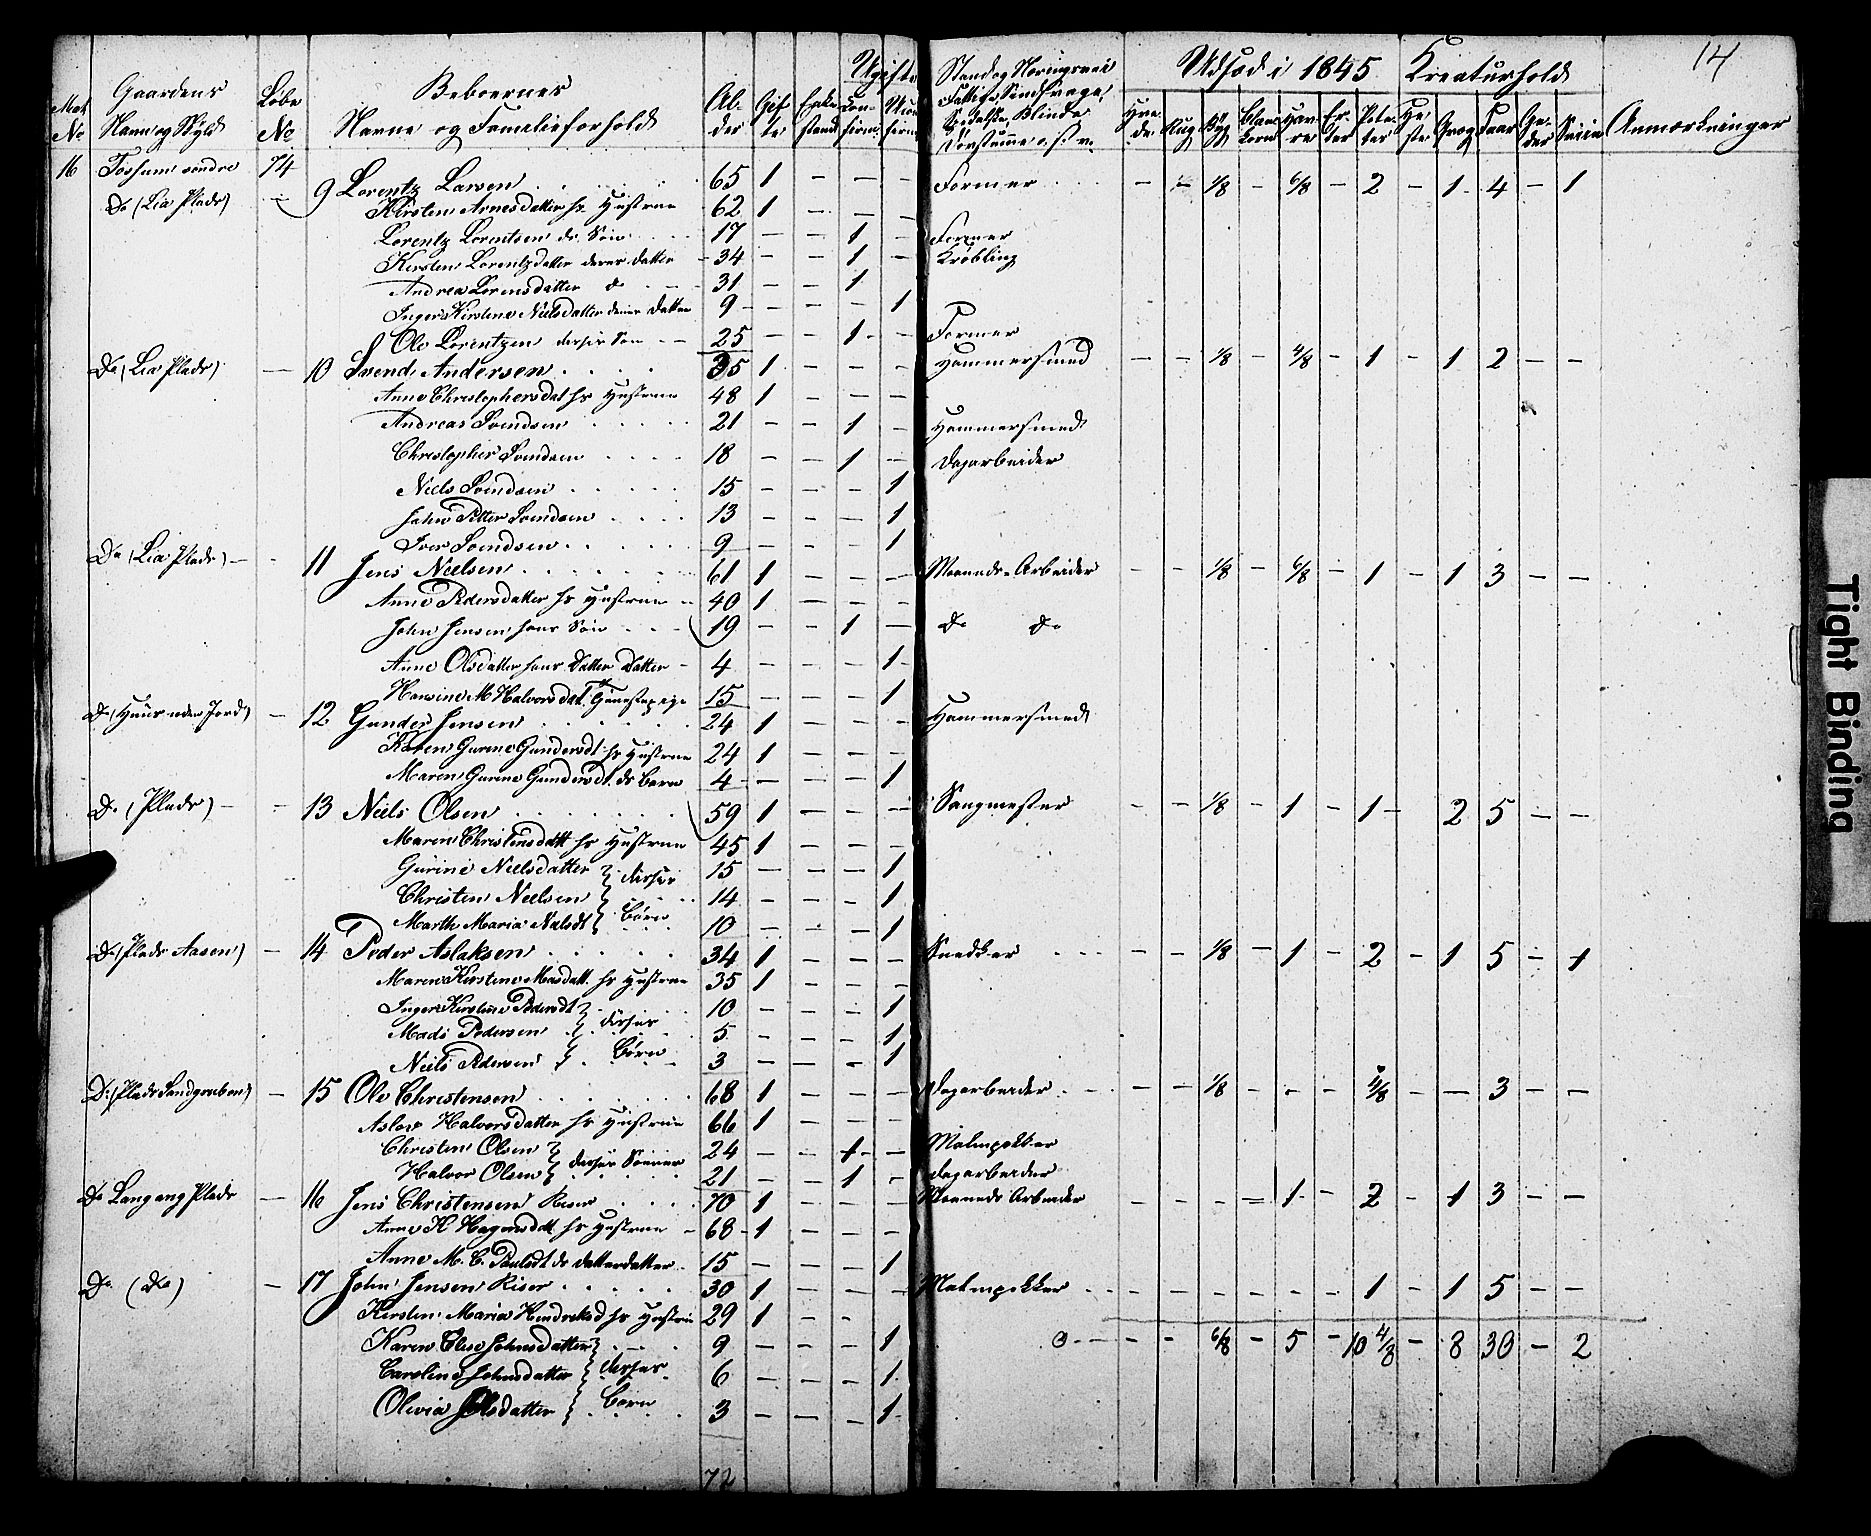 14
Mat. No | Gaardens Navn og Skyld | Løbe No | Beboernes Navne og Familieforhold | Alder | Gifte | Enkestand | Ugifte
Stand og Næringsvei Fattige, Sindsvage, Spedalske, Blinde Døvstumme o. s. v.
Udsæd i 1845 | Kreaturhold | Anmærkninger
16 Fossum søndre 74
Do (Lia Plads) 9 Lorentz Larsen 65 1 - - - Former - - 1/8 - 6/8 - 2 - 1 4 - 1
Kirsten Arnesdatter hs Hustrue 62 1 - - -
Lorentz Lorentsen ds Søn 17 - - 1 - Former
Kirsten Lorentzdatter deres datter 34 - - 1 - Krøbling
Andrea Lorensdatter do 31 - - 1
Inger Kirstine Nielsdatter denes Datter 9 - - - 1
Ole Lorentzen deres Søn 25 - - 1 - Former
Do (Lia Plads) 10 Svend Andersen 35 1 - - - Hammersmed - - 1/8 - 4/8 - 1 - 1 2 - -
Anne Christophersdat hs Hustrue 48 1 - - -
Andreas Svendsen 21 - - 1 - Hammersmed
Christopher Svendsen 18 - - 1 - Dagarbeider
Niels Svendsen 15 - - - 1
John Petter Svendsen 13 - - - 1
Iver Svendsen 9 - - 1
Do (Lia Plads) 11 Jens Nielsen 61 1 - - - Maaneds-Arbeider - - 1/8 - 6/8 - 1 - 1 3 - -
Anne Pedersdatter hs Hustrue 40 1 - - -
John Jensen hans Søn 19 - - 1 - Do Do
Anne Olsdatter hans Datter Datter 4 - - - 1
Hansine M Halvorsdat. Tjenestepige 15 - - - 1
Do (Huus uden Jord) 12 Gunder Jensen 24 1 - - - Hammersmed
Karen Gurine Gundersdt hs Hustrue 24 1 - - -
Maren Gurine Gundersdt. ds Barn 4 - - - 1
Do (Plads) 13 Niels Olsen 59 1 - - - Saugmester - - 1/8 - 1 - 1 - 2 5 - -
Maren Christensdatt hs Hustrue 45 1 - - -
Gurine Nielsdatter } deres 15 - - - 1
Christen Nielsen 14 - - - 1
Marthe Maria Nielsdt } Børn 10 - - - 1
Do (Plads Aasen) 14 Peder Aslaksen 34 1 - - - Snedker - - 1/8 - 1 - 2 - 1 5 - 1
Maren Kirstine Masdatt. hs Hustrue 35 1 - - -
Inger Kirstine Pedersdt } 10 - - - 1
Mads Pedersen } deres 5 - - - 1
Niels Pedersen } Børn 3 - - - 1
Do (Plads Sandgruben) 15 Ole Christensen 68 1 - - - Dagarbeider - - 1/8 - - - 4/8 - - 3 - -
Aslov Halvorsdatter hs Hustrue 66 1 - - -
Christen Olsen } deres Sønner 24 - - 1 - Malmpokker
Halvor Olsen } 21 - - 1 - Dagarbeider
Do Langang Plads 16 Jens Christensen Riser 70 1 - - - Maaneds Arbeider - - - - 1 - 2 - 1 3 - -
Anne H Hagensdatt hs Hustrue 68 1 - - -
Anne M. C. Paulsdt ds datterdatter 15 - - - 1
Do (Do) 17 John Jensen Riser 30 1 - - - Malmpokker - - - - - - 1 - 1 5 - -
Kirsten Maria Hendriksd hs Hustrue 29 1 - -
Karen Elise Johnsdatter } 9 - - - 1
Caroline Johnsdatter } deres 6 - - - 1
Olivia Olsdatter } Børn 3 - - - 1
0 - - 6/8 - 5 - 10 4/8 - 8 30 - 2
72
Tight Binding